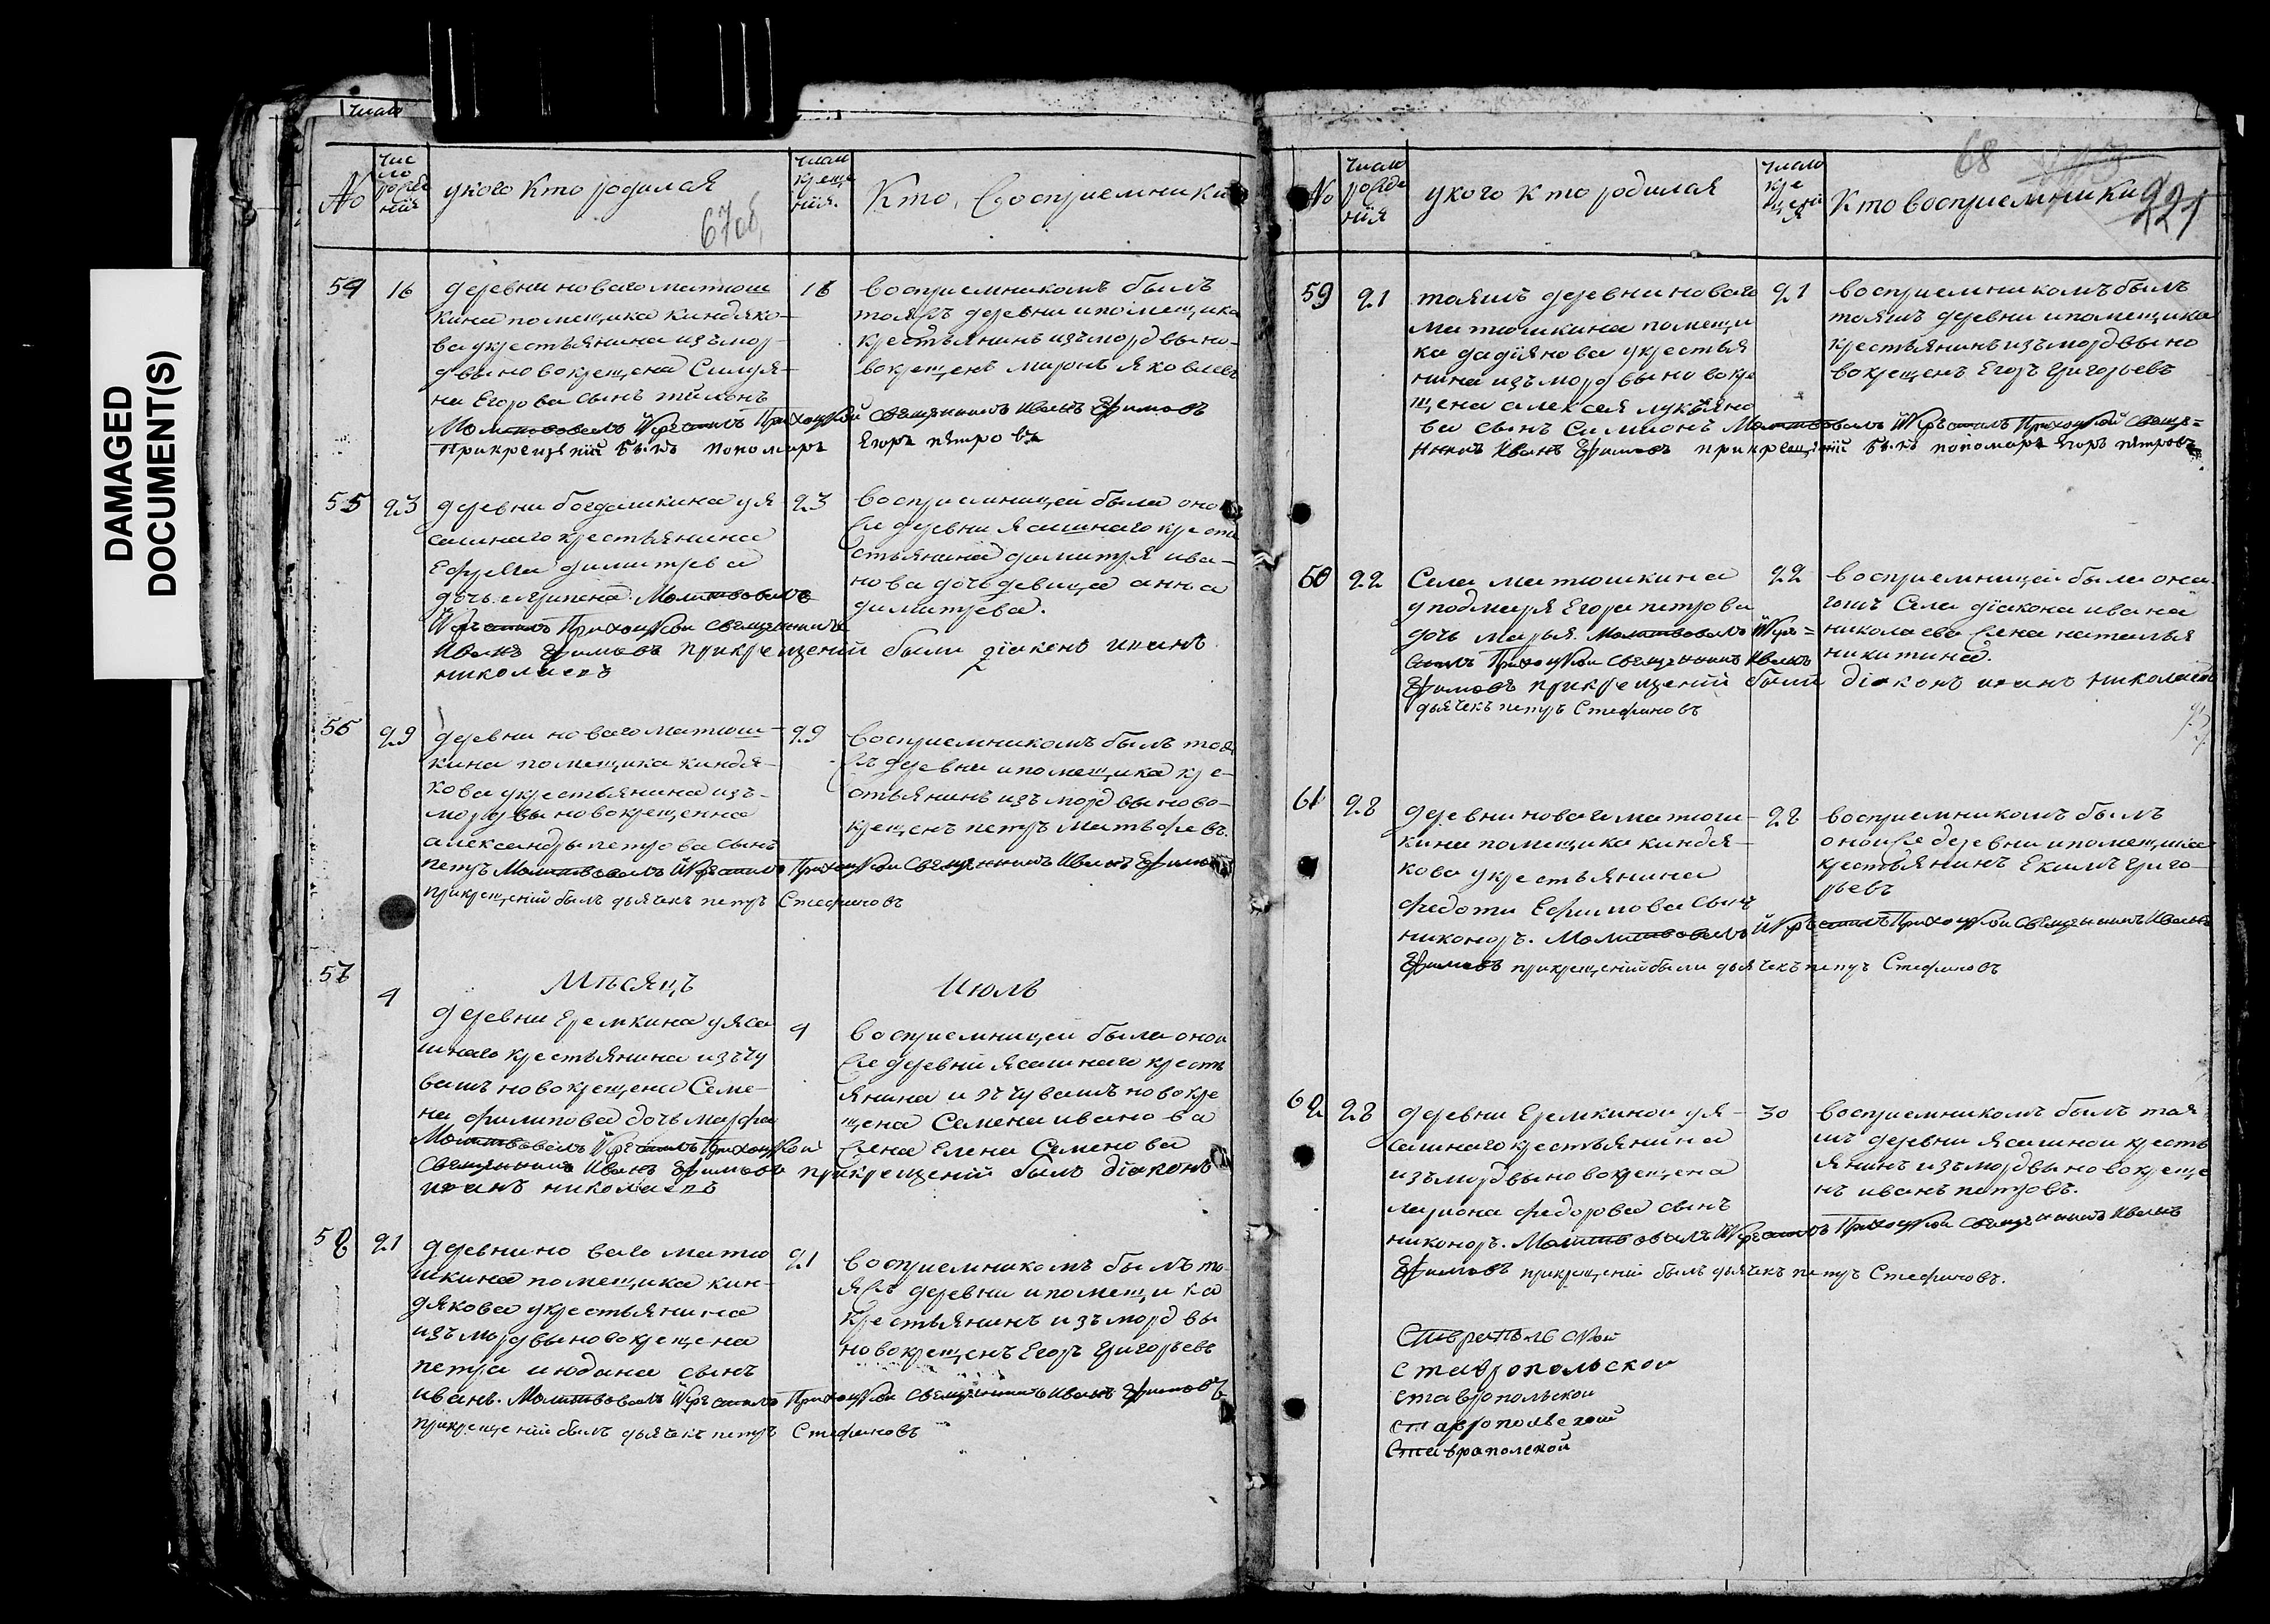 DAMAGED
DOCUMENT(S)
число
№
число рождения
у кого кто родился
67об.
число крещения
Кто восприемники
54 16
деревни новаго матюш
кина помещика киндяко-
ва укрестьянина изъ мор-
двы новокрещена Симуя-
на Егорова сынъ тимонъ
Молитвовалъ и крестилъ Приходской священникъ Иванъ Ефимовъ
Прикрещении былъ пономарь Егоръ петровъ
16
восприемникомъ былъ
тояжъ деревни и помещика
крестьянинъ изъ мордвы но-
вокрещенъ миронъ яковлевъ
55 23
деревни богдашкина у я
сашнаго крестьянина
Ефрема димитрева
дочь агрипена. Молитвовалъ
и крестилъ Приходской священникъ
Иванъ Ефимовъ прикрещении были диаконъ иоанъ
николаевъ
23
восприемницей была оной
же деревни ясашнаго кре
стьянина димитрия ива-
нова дочь девица анна
димитрева.
56 29
деревни новаго матюш-
кина помещика киндя-
кова укрестьянина изъ
мордвы новокрещенна
александры петрова сынъ
петръ Молитвовалъ и крестилъ Приходской священникъ Иванъ Ефимовъ
прикрещении былъ дьячекъ петръ Стефановъ
29
восприемникомъ былъ тоя
жъ деревни и помещика кре-
стьянинъ изъ мордвы ново-
крещенъ петръ матьфеевъ.
57
Мѣсяцъ Июль
4
деревни Еремкина у яса
шнаго крестьянина изъ чу
вашъ новокрещена Семе-
на филипова дочь марфа
Молитвовалъ и крестилъ Приходской
священникъ Иванъ Ефимовъ прикрещении былъ диаконъ
иоанъ николаевъ
4
восприемницей была оной
же деревни ясашнаго кресть
янина изъ чувашъ новокре
щена Семена иванова
жена Елена Семенова
58 21
деревни новаго матю
шкина помещика кин-
дякова укрестьянина
изъ мордвы новокрещена
петра июдана сынъ
иванъ. Молитвовалъ и крестилъ Приходской священникъ Иванъ Ефимовъ
прикрещении былъ дьячекъ петръ Стефановъ
21
восприемникомъ былъ то-
яжъ деревни и помещика
крестьянинъ изъ мордвы
новокрещенъ Егоръ григорьевъ
№
число рождения
у кого кто родился
число крещения
68
Кто восприемники
221
59 21
тояжъ деревни новаго
матюшкина помещи
ка дадиянова укрестья
нина изъ мордвы новокре
щена алексея лукьяно
ва сынъ Симионъ Молитвовалъ и крестилъ Приходской свяще=
нникъ Иванъ Ефимовъ прикрещении былъ пономарь Егоръ петровъ
21
восприемникомъ былъ
тояжъ деревни и помещика
крестьянинъ изъ мордвы но
вокрещенъ Егоръ григорьевъ
60 22
Села матюшкина
у подмаря Егора петрова
дочь марья. Молитвовалъ и кре=
стилъ Приходской священникъ Иванъ
Ефимовъ прикрещении были диаконъ иоанъ николаевъ
дьячекъ петръ Стефановъ
22
восприемницей была она
гожъ Села диакона ивана
николаева жена наталья
никитина.
61 28
деревни новаго матюш-
кина помещика киндя-
кова укрестьянина
федота Ефимова сынъ
никоноръ. Молитвовалъ и крестилъ Приходской священникъ Иванъ
Ефимовъ прикрещении были дьячекъ петръ Стефановъ
28
восприемникомъ былъ
оной же деревни и помещика
крестьянинъ Екимъ григо-
рьевъ
62 28
деревни Еремкиной у я-
сашнаго крестьянина
изъ мордвы новокрещена
лариона федорова сынъ
никоноръ. Молитвовалъ и крестилъ Приходской священникъ Иванъ
Ефимовъ прикрещении былъ дьячекъ петръ Стефановъ.
30
восприемникомъ былъ тоя
жъ деревни ясашной кресть
янинъ изъ мордвы новокреще
нъ иванъ петровъ.
Ставропольской
ставропольской
ставропольской
ставропольской
Ставраполской